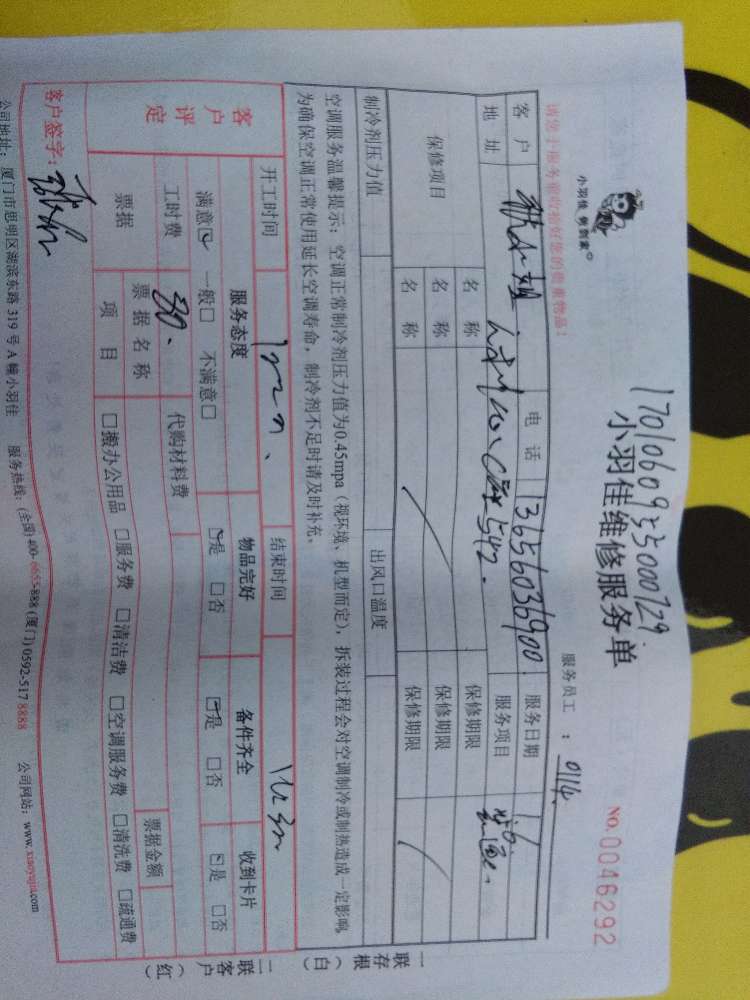 17010609355000729
小羽佳维修服务单
小羽佳 例到家
NO.0046292
服务员工：0114
客户
电话 13656036900
服务日期 1.6
地址
服务项目
保修项目
名称
保修期限
名称
保修期限
名称
保修期限
制冷剂压力值
出风口温度
空调服务温馨提示：空调正常制冷剂压力值为0.45mpa（视环境、机型而定），拆装过程会对空调制冷或制热造成一定影响
为确保空调正常使用延长空调寿命，制冷剂不足时请及时补充。
客户评定
开工时间
结束时间
服务态度
物品完好
备件齐全
收到卡片
满意☑ 一般□ 不满意□
☑是 □否
☑是 □否
☑是 □否
工时费 30.
代购材料费
票据
票据名称
票据金额
项目
□搬办公用品 □服务费 □清洁费 □空调服务费 □清洗费 □疏通费
客户签字：
公司地址：厦门市思明区湖滨东路 319 号 A 幢小羽佳 服务热线：(全国) 400-6655-888 (厦门) 0592-517 8888 公司网站：www.xiaoyujia.com
一联存根（白）
二联客户（红）